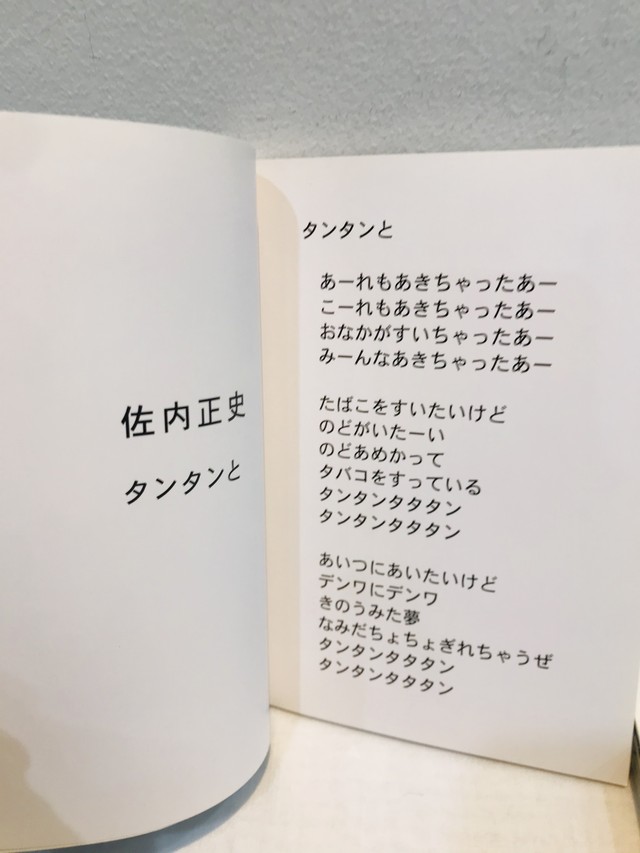 佐内正史
タンタンと
タンタンと
あーれもあきちゃったあー
こーれもあきちゃったあー
おなかがすいちゃったあー
みーんなあきちゃったあー
たばこをすいたいけど
のどがいたーい
のどあめかって
タバコをすっている
タンタンタタタン
タンタンタタタン
あいつにあいたいけど
デンワにデンワ
きのうみた夢
なみだちょちょぎれちゃうぜ
タンタンタタタン
タンタンタタタン